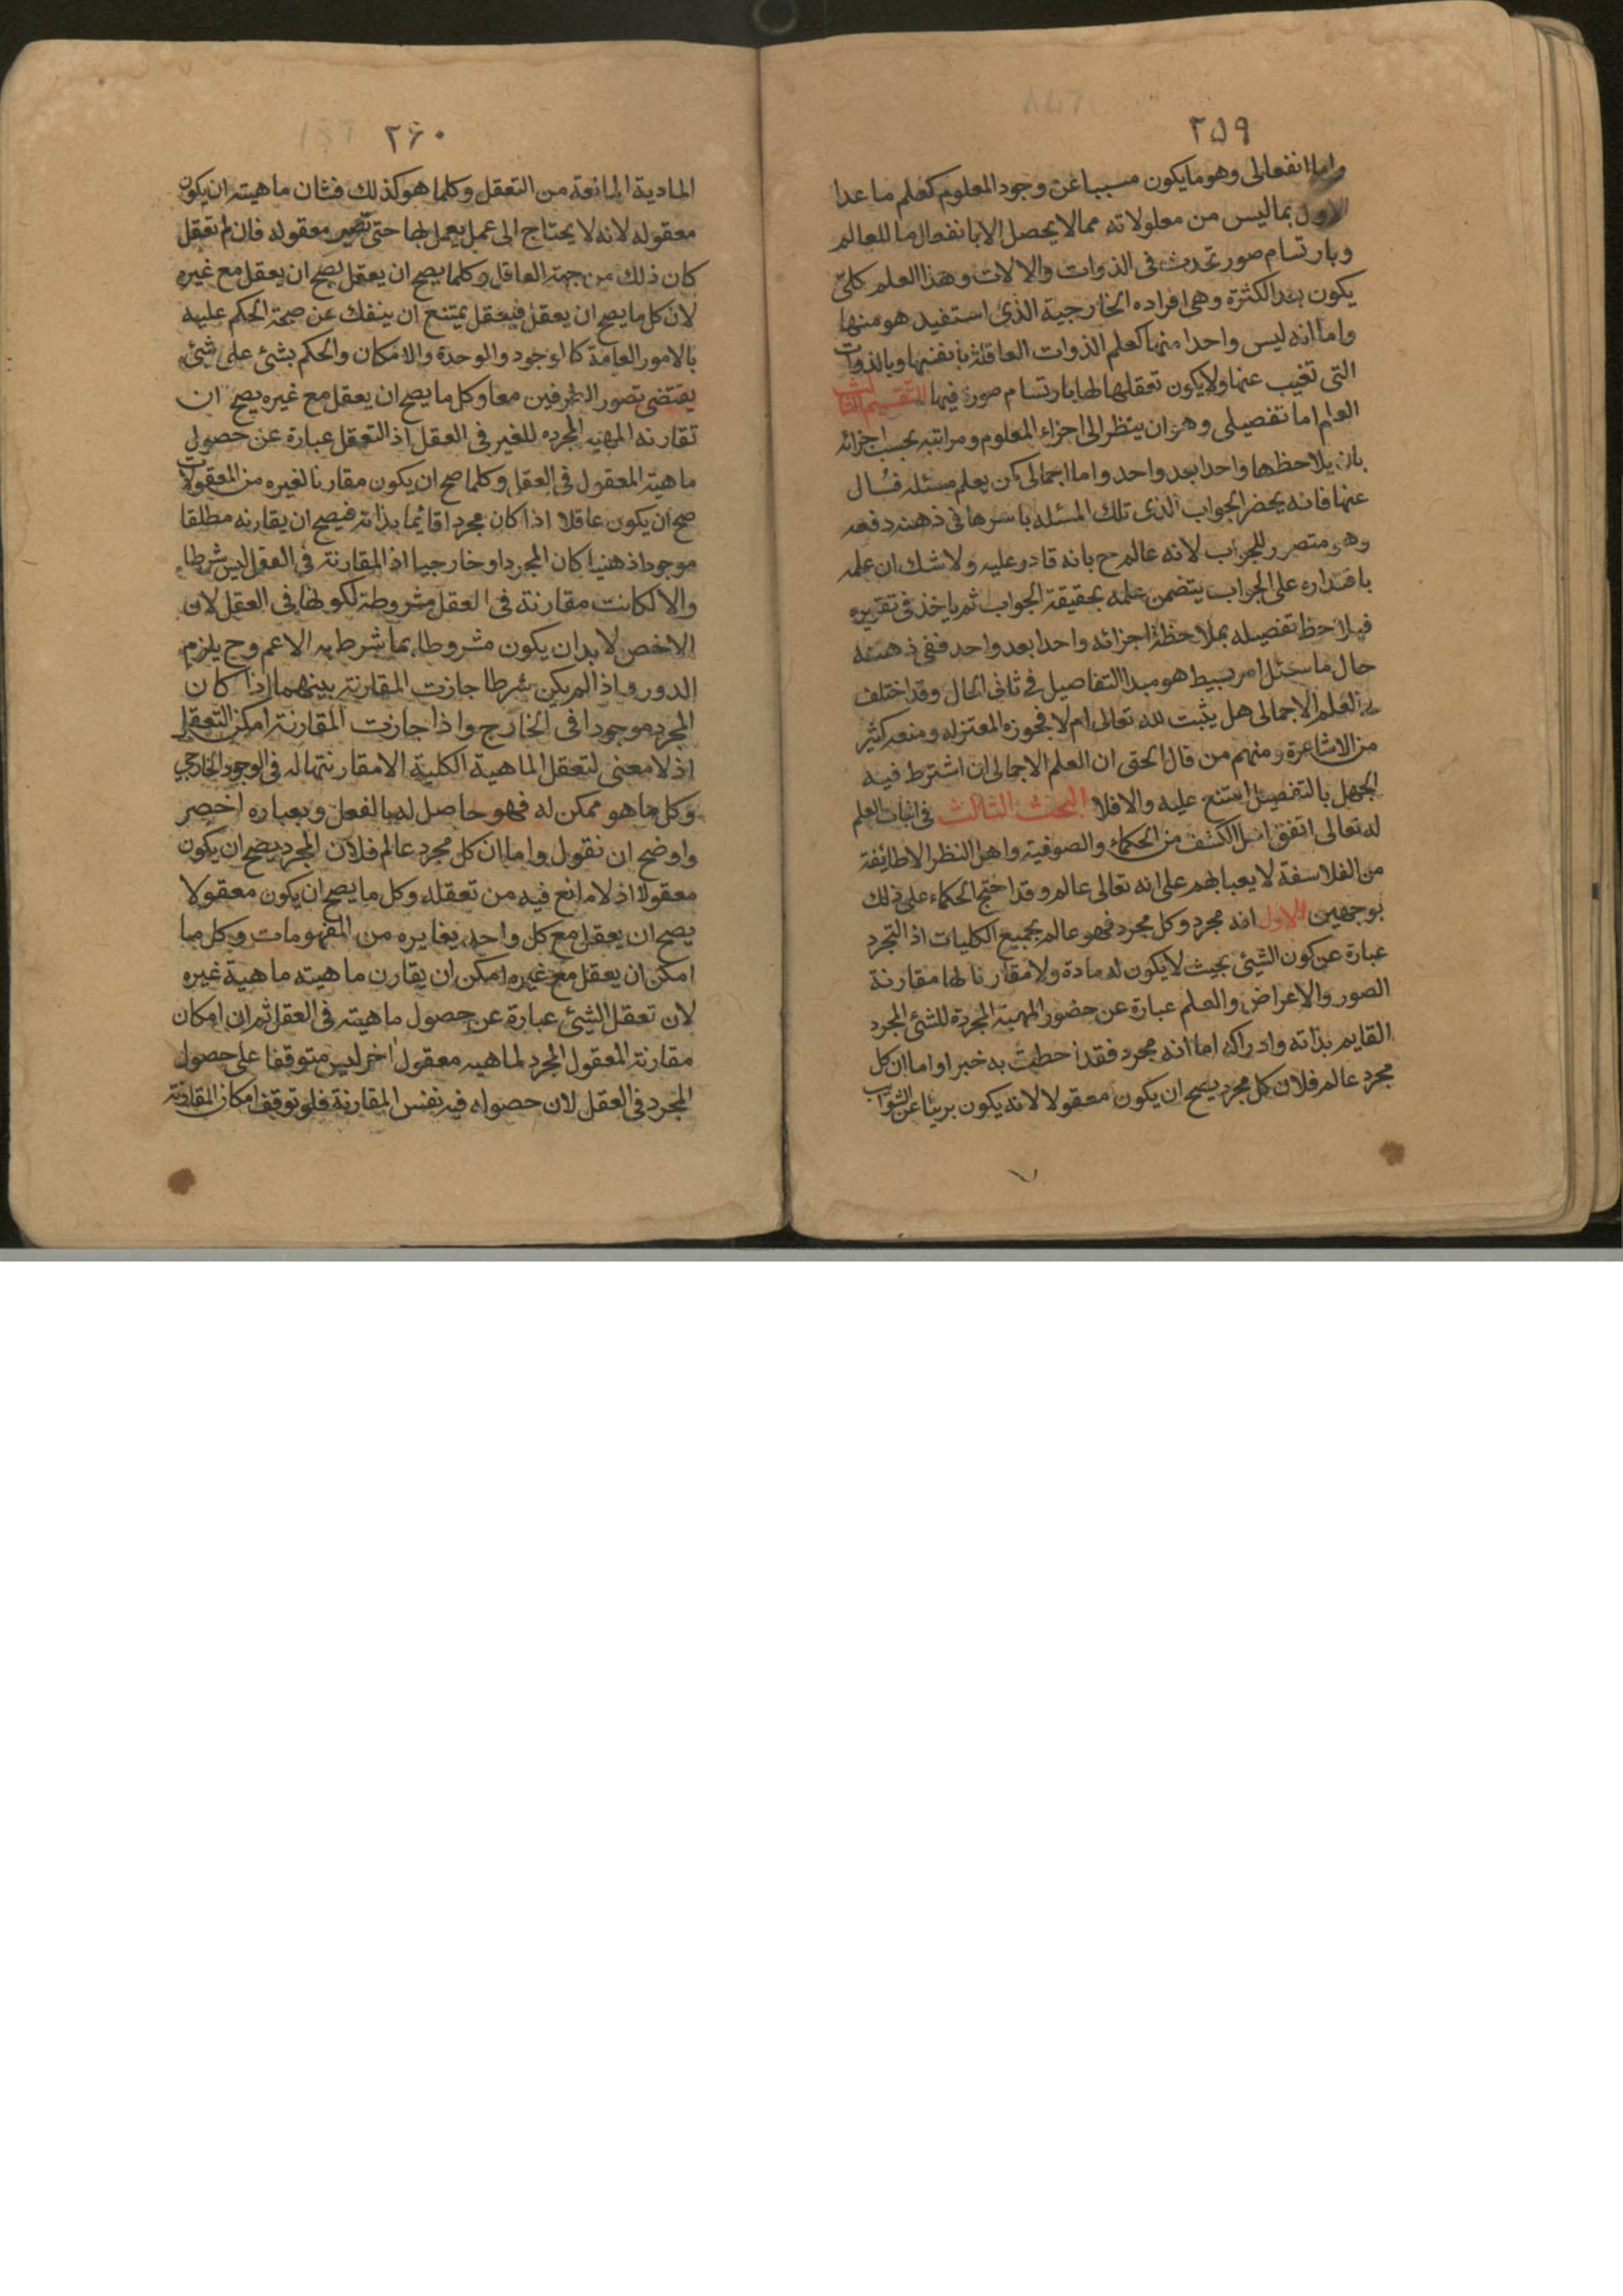 ٢٥٩
واما انفعالى وهو ما يكون مسببا عن وجود المعلوم كعلم ما عدا
الاول بما ليس من معلولاته مما لا يحصل الا بانفعال ما للعالم
وبارتسام صور تحدث فى الذوات والالات وهذا العلم كلىّ
يكون بعد الكثرة وهى افراده الخارجية الذى استفيد هو منها
واما انه ليس واحدا منها كعلم الذوات العاقلة بانفسها وبالذوات
التى تغيب عنها ولا يكون تعقلها لها بارتسام صورة فيها التقسيم الثالث
العلم اما تفصيلى وهو ان ينظر الى اجزاء المعلوم ومراتبه بحسب اجزائه
بان يلاحظها واحدا بعد واحد واما اجمالى كمن يعلم مسئله فسأل
عنها فانه يحضر الجواب الذى تلك المسئله باسرها فى ذهنه دفعه
وهو متصور للجواب لانه عالم ح بانه قادر عليه ولا شك ان علمه
باقتداره على الجواب يتضمن علمه بحقيقة الجواب ثم ياخذ فى تقريره
فيلاحظ تفصيله بملاحظة اجزائه واحدا بعد واحد ففى ذهنه
حال ما سئل امر بسيط هو مبدا التفاصيل فى ثانى الحال وقد اختلف
فى العلم الاجمالى هل يثبت لله تعالى ام لا فجوزه المعتزله ومنعه كثير
من الاشاعرة ومنهم من قال الحق ان العلم الاجمالى ان اشترط فيه
الجهل بالتفصيل امتنع عليه والا فلا البحث الثالث فى اثبات العلم
له تعالى اتفق اهل الكشف من الحكماء والصوفية واهل النظر الا طائفة
من الفلاسفة لا يعبا بهم على انه تعالى عالم وقد احتج الحكماء على ذلك
بوجهين الاول انه مجرد وكل مجرد فهو عالم بجميع الكليات اذ التجرد
عبارة عن كون الشيئ بحيث لا يكون له مادة ولا مقارنا لها مقارنة
الصور والاعراض والعلم عبارة عن حضور المهية المجردة للشئ المجرد
القايم بذاته وادراكه اما انه مجرد فقد احطت به خبرا واما ان كل
مجرد عالم فلان كل مجرد يصح ان يكون معقولا لانه يكون بريئا عن الشوائب
٢۶٠
المادية المانعة من التعقل وكلما هو كذلك فشان ماهيته ان يكون
معقوله لانه لا يحتاج الى عمل يعمل لها حتى تصير معقوله فان لم تعقل
كان ذلك من جهة العاقل وكلما يصح ان يعقل يصح ان يعقل مع غيره
لان كل ما يصح ان يعقل فتعقل يمتنع ان ينفك عن صحة الحكم عليه
بالامور العامة كالوجود والوحدة والامكان والحكم بشئ على شئ
يقتضى تصور الطرفين معا وكل ما يصح ان يعقل مع غيره يصح ان
تقارنه المهيه المجرده للغير فى العقل اذ التعقل عبارة عن حصول
ماهية المعقول فى العقل وكلما صح ان يكون مقارنا لغيره من المعقولات
صح ان يكون عاقلا اذا كان مجردا قائما بذاته فيصح ان يقارنه مطلقا
موجودا ذهنيا كان المجرد او خارجيا اذ المقارنة فى العقل ليس شرطا
والا لكانت مقارنة فى العقل مشروطة لكونها فى العقل لان
الاخص لا بد ان يكون مشروطا بما شرط به الاعم وح يلزم
الدور واذا لم يكن شرطا جازت المقارنة بينهما اذا كان
المجرد موجودا فى الخارج واذا جازت المقارنة امكن التعقل
اذ لا معنى لتعقل الماهية الكلية الا مقارنتها له فى الوجود الخارجي
وكل ما هو ممكن له فهو حاصل له بالفعل وبعباره اخصر
واوضح ان نقول واما ان كل مجرد عالم فلان المجرد يصح ان يكون
معقولا اذ لا مانع فيه من تعقله وكل ما يصح ان يكون معقولا
يصح ان يعقل مع كل واحد يغايره من المفهومات وكل ما
امكن ان يعقل مع غيره امكن ان يقارن ماهيته ماهية غيره
لان تعقل الشيئ عبارة عن حصول ماهيته فى العقل ثم ان امكان
مقارنة المعقول المجرد لماهيه معقول اخر ليس متوقفا على حصول
المجرد فى العقل لان حصوله فيه نفس المقارنة فلو توقف امكان المقارنة